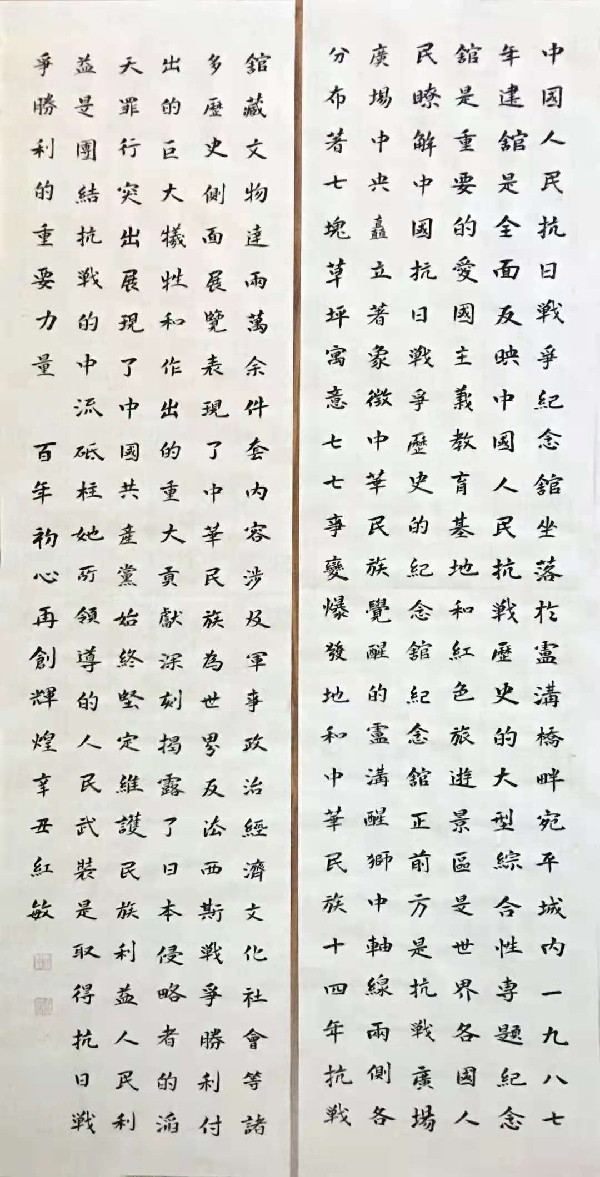 中國人民抗日戰爭紀念館坐落於盧溝橋畔宛平城內一九八七
年建館是全面反映中國人民抗戰歷史的大型綜合性專題紀念
館是重要的愛國主義教育基地和紅色旅遊景區是世界各國人
民瞭解中國抗日戰爭歷史的紀念館紀念館正前方是抗戰廣場
廣場中央矗立著象徵中華民族覺醒的盧溝醒獅中軸線兩側各
分布著七塊草坪寓意七七事變爆發地和中華民族十四年抗戰
館藏文物達兩萬余件套內容涉及軍事政治經濟文化社會等諸
多歷史側面展覽表現了中華民族為世界反法西斯戰爭勝利付
出的巨大犧牲和作出的重大貢獻深刻揭露了日本侵略者的滔
天罪行突出展現了中國共產黨始終堅定維護民族利益人民利
益是團結抗戰的中流砥柱她所領導的人民武裝是取得抗日戰
爭勝利的重要力量 百年初心再創輝煌辛丑紅敏